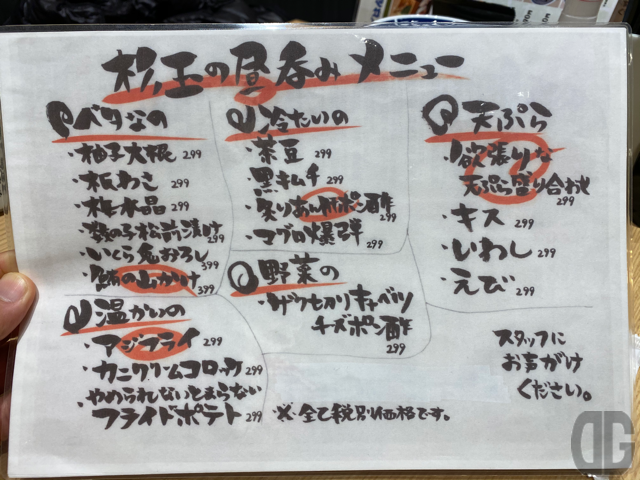 杉玉の昼呑みメニュー
ベタなの
・柚子大根 299
・板わさ 299
・梅水晶 299
・数の子松前漬け 299
・いくら鬼おろし 399
・鮪の山かけ 399
温かいの
・アジフライ 299
・カニクリームコロッケ 299
・やめられないとまらない
フライドポテト 299
冷たいの
・茶豆 299
・黒キムチ 299
・炙りあん肝ポン酢 299
・マグロ爆弾 299
野菜の
・ザク切りキャベツ
チーズポン酢
299
天ぷら
・欲張りな
天ぷら盛り合わせ
299
・キス 299
・いわし 299
・えび 299
スタッフに
お声がけ
ください。
※全て税別価格です。
DG